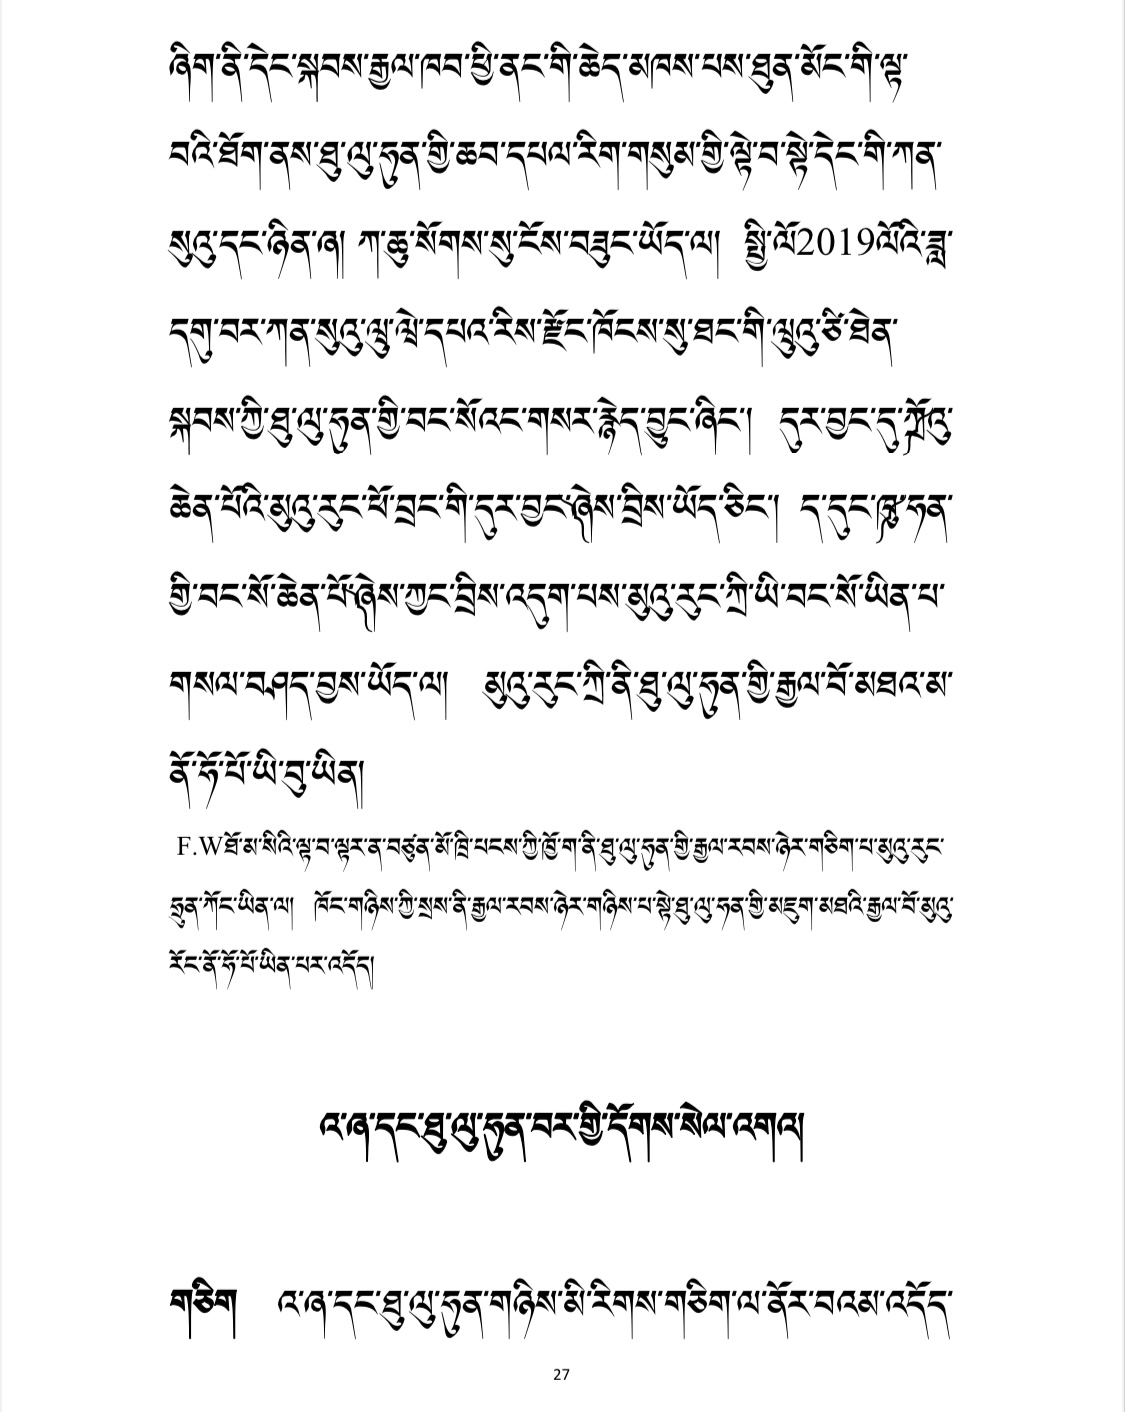 ཞིག་ནི་དེང་སྐབས་རྒྱལ་ཁབ་ཕྱི་ནང་གི་ཆེད་མཁས་པས་ཐུན་མོང་གི་ལྟ་
བའི་ཐོག་ནས་ཐུ་ལུ་ཧུན་གྱི་ཆབ་དཔལ་རིག་གསུམ་གྱི་ལྟེ་བ་སྟེ་དེང་གི་ཀན་
སུའུ་དང་ཉིན་ཞ། ཀ་ཆུ་སོགས་སུ་ངོས་བཟུང་ཡོད་ལ། སྤྱི་ལོ2019ལོའི་ཟླ་
དགུ་བར་ཀན་སུའུ་ལྷུ་ལེ་དཔའ་རིས་རྫོང་ཁོངས་སུ་ཐང་གི་ལྷུའུ་ཙི་ཐེན་
སྐབས་ཀྱི་ཐུ་ལུ་ཧུན་གྱི་བང་སོའང་གསར་རྙེད་བྱུང་ཞིང་། དུར་བྱང་དུ་ཀྲོའུ་
ཆེན་པོའི་མུའུ་རུང་ཕོ་བྲང་གི་དུར་བྱང་ཞེས་བྲིས་ཡོད་ཅིང་། ད་དུང་ཁྲུ་ཧན་
གྱི་བང་སོ་ཆེན་པོ་ཞེས་ཀྱང་བྲིས་འདུག་པས་མུའུ་རུང་ཀྲི་ཡི་བང་སོ་ཡིན་པ་
གསལ་བཤད་བྱས་ཡོད་ལ། མུའུ་རུང་ཀྲི་ནི་ཐུ་ལུ་ཧུན་གྱི་རྒྱལ་བོ་མཐའ་མ་
ནོ་ཧོ་པོ་ཡི་བུ་ཡིན།
F.Wཐོ་མ་སིའི་ལྟ་བ་ལྟར་ན་བཙུན་མོ་ཁྲི་པངས་ཀྱི་ཁྱོ་ག་ནི་ཐུ་ལུ་ཧུན་གྱི་རྒྱལ་རབས་ཉེར་གཅིག་པ་མུའུ་རུང་
ཧྲུན་ཀོང་ཡིན་ལ། ཁོང་གཉིས་ཀྱི་སྲས་ནི་རྒྱལ་རབས་ཉེར་གཉིས་པ་སྟེ་ཐུ་ལུ་ཧན་གྱི་མཇུག་མཐའི་རྒྱལ་བོ་མུའུ་
རོང་ནོ་ཧོ་པོ་ཡིན་པར་འདོད།
འ་ཞ་དང་ཐུ་ལུ་ཧུན་བར་གྱི་དོགས་སེལ་འགའ།
གཅིག འ་ཞ་དང་ཐུ་ལུ་ཧུན་གཉིས་མི་རིགས་གཅིག་ལ་ནོར་བའམ་འདོད་
27